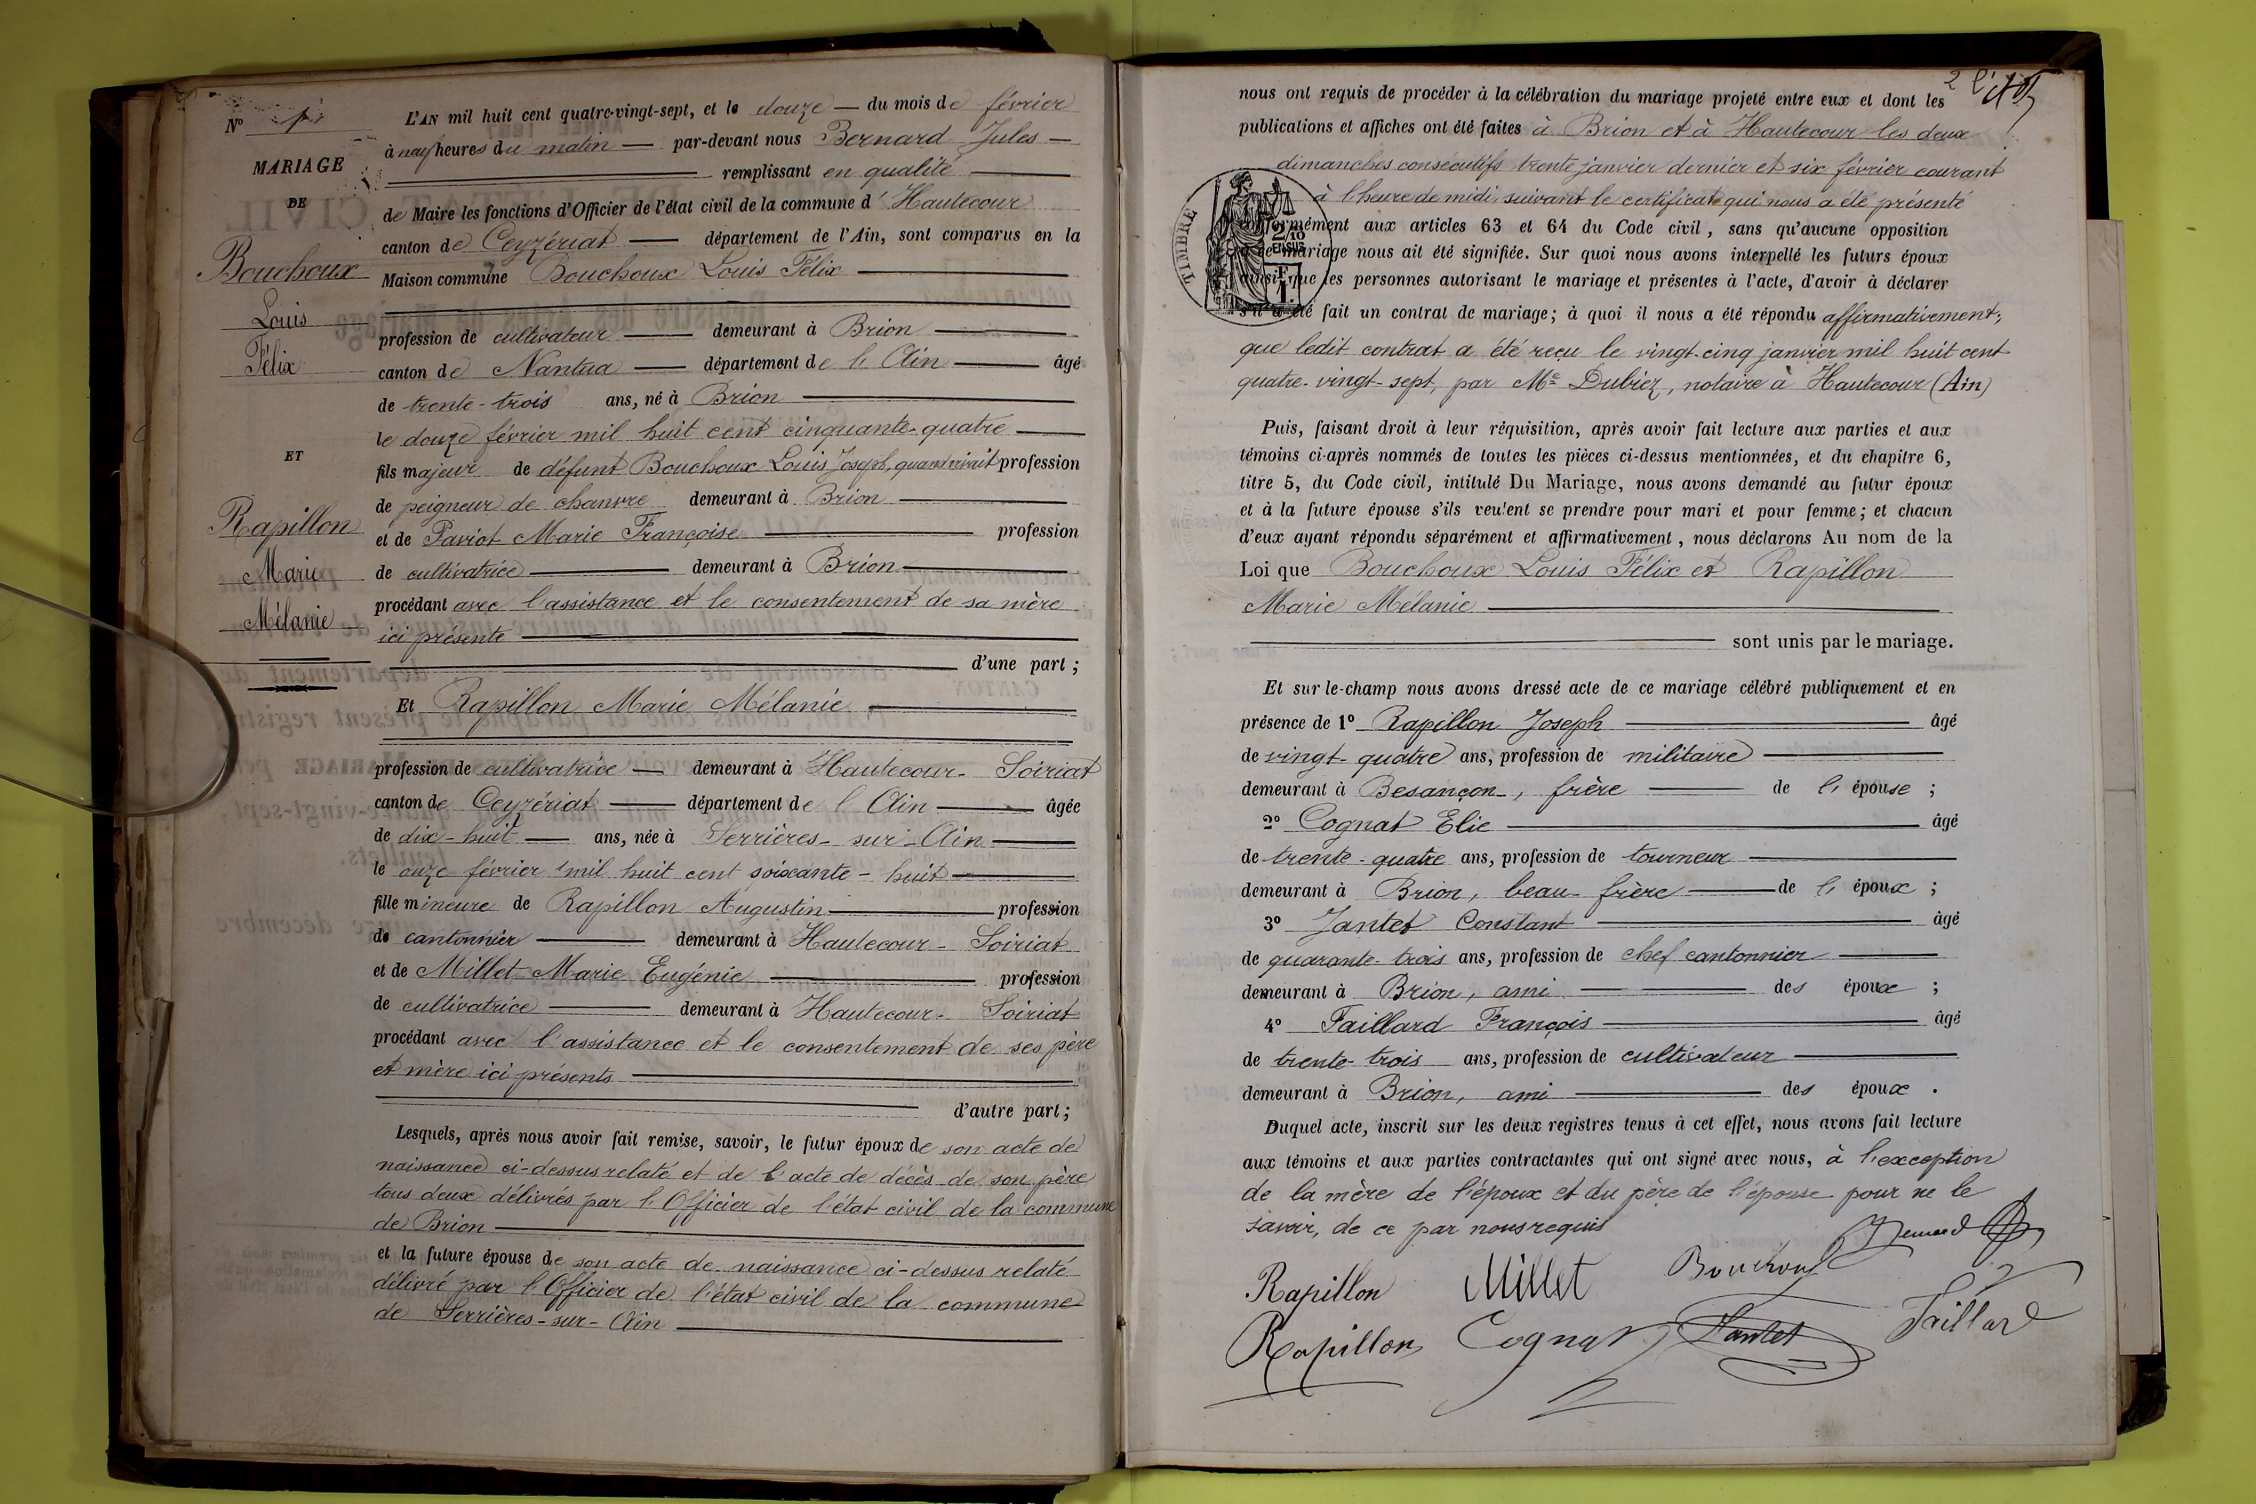 N° 1
MARIAGE
DE
Bouchoux
Louis
Félix
ET
Rapillon
Marie
Mélanie
L'AN mil huit cent quatre-vingt-sept, et le douze du mois de février
à neuf heures du matin par-devant nous Bernard Jules
remplissant en qualité
de Maire les fonctions d'Officier de l'état civil de la commune d'Hautecour
canton de Ceyzériat département de l'Ain, sont comparus en la
Maison commune Bouchoux Louis Félix
profession de cultivateur demeurant à Brion
canton de Nantua département de l'Ain âgé
de trente-trois ans, né à Brion
le douze février mil huit cent cinquante-quatre
fils majeur de défunt Bouchoux Louis Joseph, quand vivait profession
de peigneur de chanvre demeurant à Brion
et de Paviot Marie Françoise profession
de cultivatrice demeurant à Brion
procédant avec l'assistance et le consentement de sa mère
ici présente
d'une part ;
Et Rapillon Marie Mélanie
profession de cultivatrice demeurant à Hautecour-Soiriat
canton de Ceyzériat département de l'Ain âgée
de dix-huit ans, née à Serrières-sur-Ain
le onze février mil huit cent soixante-huit
fille mineure de Rapillon Augustin profession
de cantonnier demeurant à Hautecour-Soiriat
et de Millet Marie Eugénie profession
de cultivatrice demeurant à Hautecour-Soiriat
procédant avec l'assistance et le consentement de ses père
et mère ici présents
d'autre part ;
Lesquels, après nous avoir fait remise, savoir, le futur époux de son acte de
naissance ci-dessus relaté et de l'acte de décès de son père
tous deux délivrés par l'Officier de l'état civil de la commune
de Brion
et la future épouse de son acte de naissance ci-dessus relaté
délivré par l'Officier de l'état civil de la commune
de Serrières-sur-Ain
2
nous ont requis de procéder à la célébration du mariage projeté entre eux et dont les
publications et affiches ont été faites à Brion et à Hautecour les deux
dimanches consécutifs trente janvier dernier et six février courant
à l'heure de midi suivant le certificat qui nous a été présenté
TIMBRE
2/10
EN SUS
1 F
conformément aux articles 63 et 64 du Code civil, sans qu'aucune opposition
à ce mariage nous ait été signifiée. Sur quoi nous avons interpellé les futurs époux
ainsi que les personnes autorisant le mariage et présentes à l'acte, d'avoir à déclarer
s'il a été fait un contrat de mariage ; à quoi il nous a été répondu affirmativement,
que ledit contrat a été reçu le vingt-cinq janvier mil huit cent
quatre-vingt-sept, par Me Dubiez, notaire à Hautecour (Ain)
Puis, faisant droit à leur réquisition, après avoir fait lecture aux parties et aux
témoins ci-après nommés de toutes les pièces ci-dessus mentionnées, et du chapitre 6,
titre 5, du Code civil, intitulé Du Mariage, nous avons demandé au futur époux
et à la future épouse s'ils veulent se prendre pour mari et pour femme ; et chacun
d'eux ayant répondu séparément et affirmativement, nous déclarons Au nom de la
Loi que Bouchoux Louis Félix et Rapillon
Marie Mélanie
sont unis par le mariage.
Et sur-le-champ nous avons dressé acte de ce mariage célébré publiquement et en
présence de 1° Rapillon Joseph âgé
de vingt-quatre ans, profession de militaire
demeurant à Besançon, frère de l'épouse ;
2° Cognat Elie âgé
de trente-quatre ans, profession de tourneur
demeurant à Brion, beau-frère de l'époux ;
3° Jantet Constant âgé
de quarante-trois ans, profession de chef cantonnier
demeurant à Brion, ami des époux ;
4° Taillard François âgé
de trente-trois ans, profession de cultivateur
demeurant à Brion, ami des époux .
Duquel acte, inscrit sur les deux registres tenus à cet effet, nous avons fait lecture
aux témoins et aux parties contractantes qui ont signé avec nous, à l'exception
de la mère de l'époux et du père de l'épouse pour ne le
savoir, de ce par nous requis
Bernard
Rapillon Millet Bouchoux
Rapillon Cognat Jantet Taillard